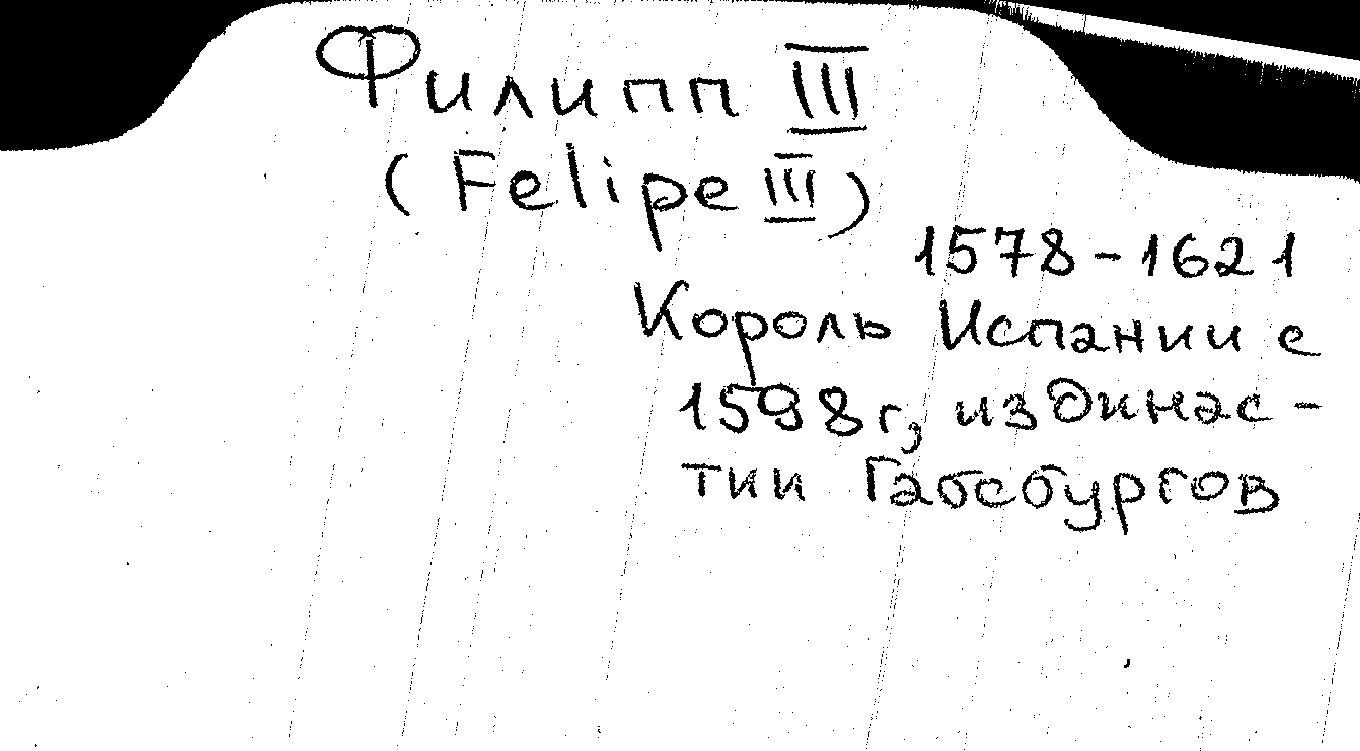 Филипп III
(Felipe III)
1578-1621
Король Испании с
1598г, из динас-
тии Габсбургов